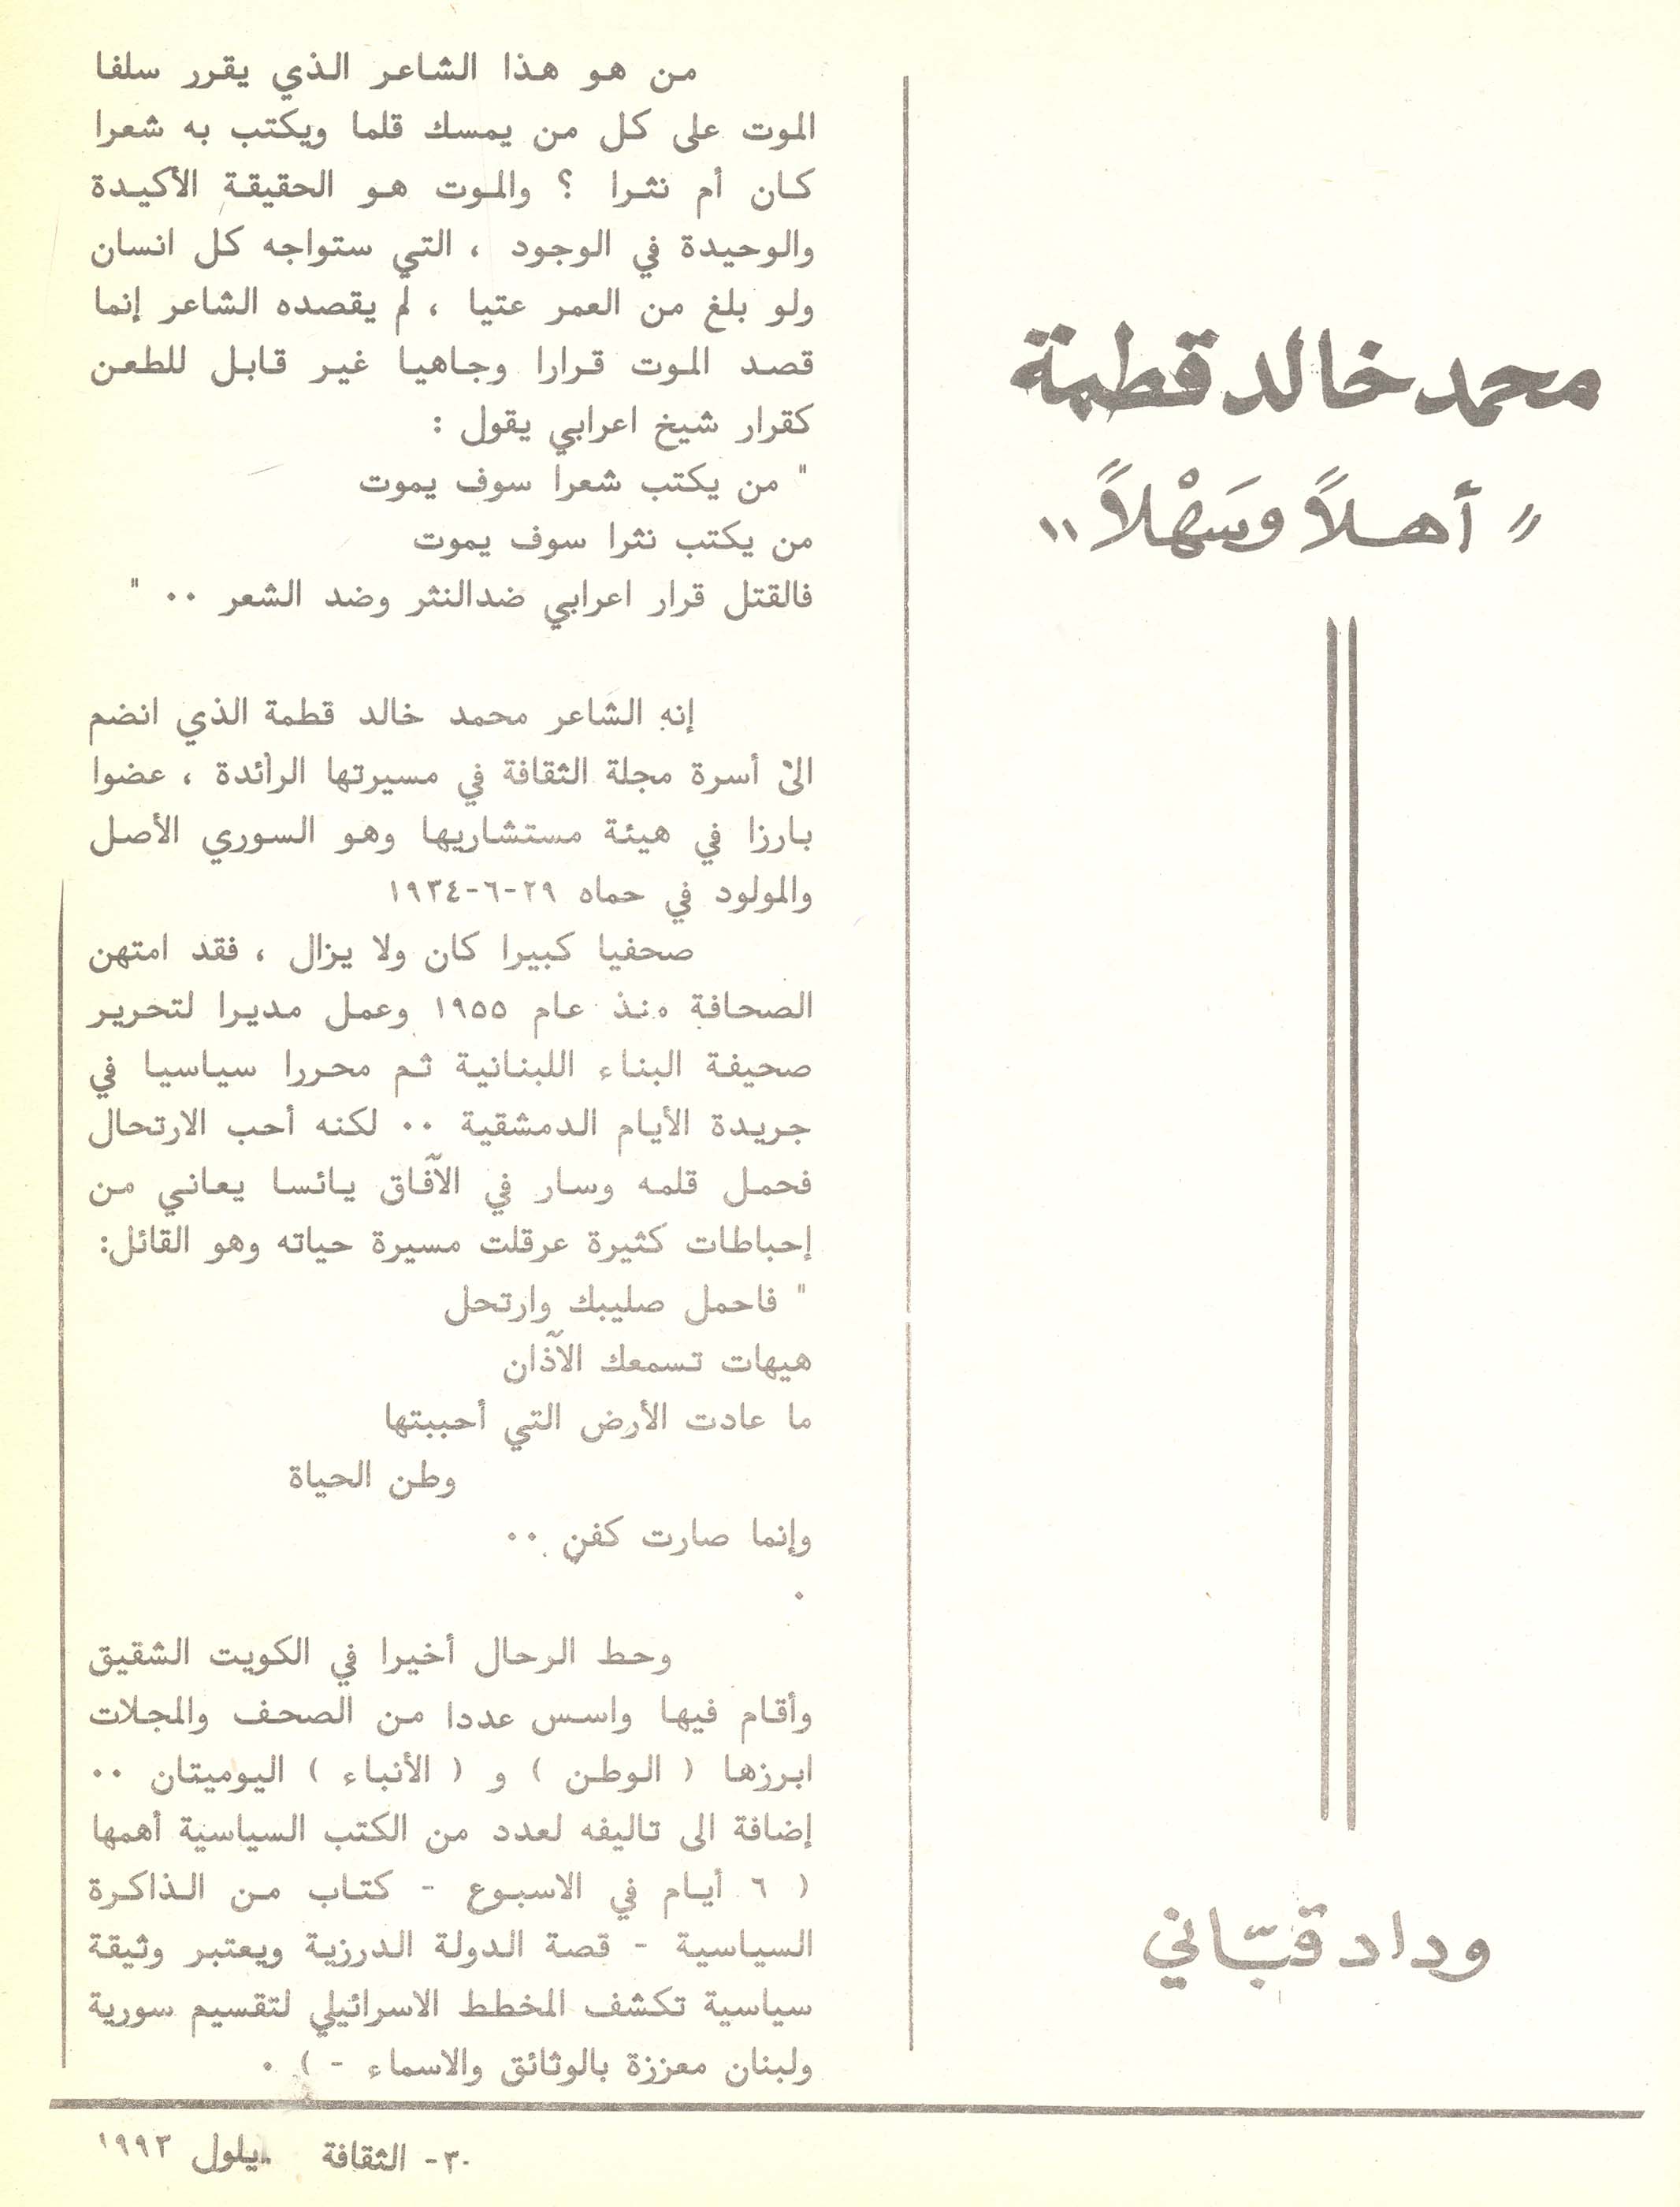 محمد خالد قطمة
" أهلاً وسَهْلاً "
وداد قبّاني
من هو هذا الشاعر الذي يقرر سلفا
الموت على كل من يمسك قلما ويكتب به شعرا
كان أم نثرا ؟ والموت هو الحقيقة الأكيدة
والوحيدة في الوجود ، التي ستواجه كل انسان
ولو بلغ من العمر عتيا ، لم يقصده الشاعر إنما
قصد الموت قرارا وجاهيا غير قابل للطعن
كقرار شيخ اعرابي يقول :
" من يكتب شعرا سوف يموت
من يكتب نثرا سوف يموت
فالقتل قرار اعرابي ضدالنثر وضد الشعر .. "
إنه الشاعر محمد خالد قطمة الذي انضم
الى أسرة مجلة الثقافة في مسيرتها الرائدة ، عضوا
بارزا في هيئة مستشاريها وهو السوري الأصل
والمولود في حماه ٢٩-٦-١٩٣٤
صحفيا كبيرا كان ولا يزال ، فقد امتهن
الصحافة منذ عام ١٩٥٥ وعمل مديرا لتحرير
صحيفة البناء اللبنانية ثم محررا سياسيا في
جريدة الأيام الدمشقية .. لكنه أحب الارتحال
فحمل قلمه وسار في الآفاق يائسا يعاني من
إحباطات كثيرة عرقلت مسيرة حياته وهو القائل:
" فاحمل صليبك وارتحل
هيهات تسمعك الآذان
ما عادت الأرض التي أحببتها
وطن الحياة
وإنما صارت كفن ..
.
وحط الرحال أخيرا في الكويت الشقيق
وأقام فيها واسس عددا من الصحف والمجلات
ابرزها ( الوطن ) و ( الأنباء ) اليوميتان ..
إضافة الى تاليفه لعدد من الكتب السياسية أهمها
( ٦ أيام في الاسبوع - كتاب من الذاكرة
السياسية - قصة الدولة الدرزية ويعتبر وثيقة
سياسية تكشف المخطط الاسرائيلي لتقسيم سورية
ولبنان معززة بالوثائق والاسماء - ) .
٣٠- الثقافة ايلول ١٩٩٣